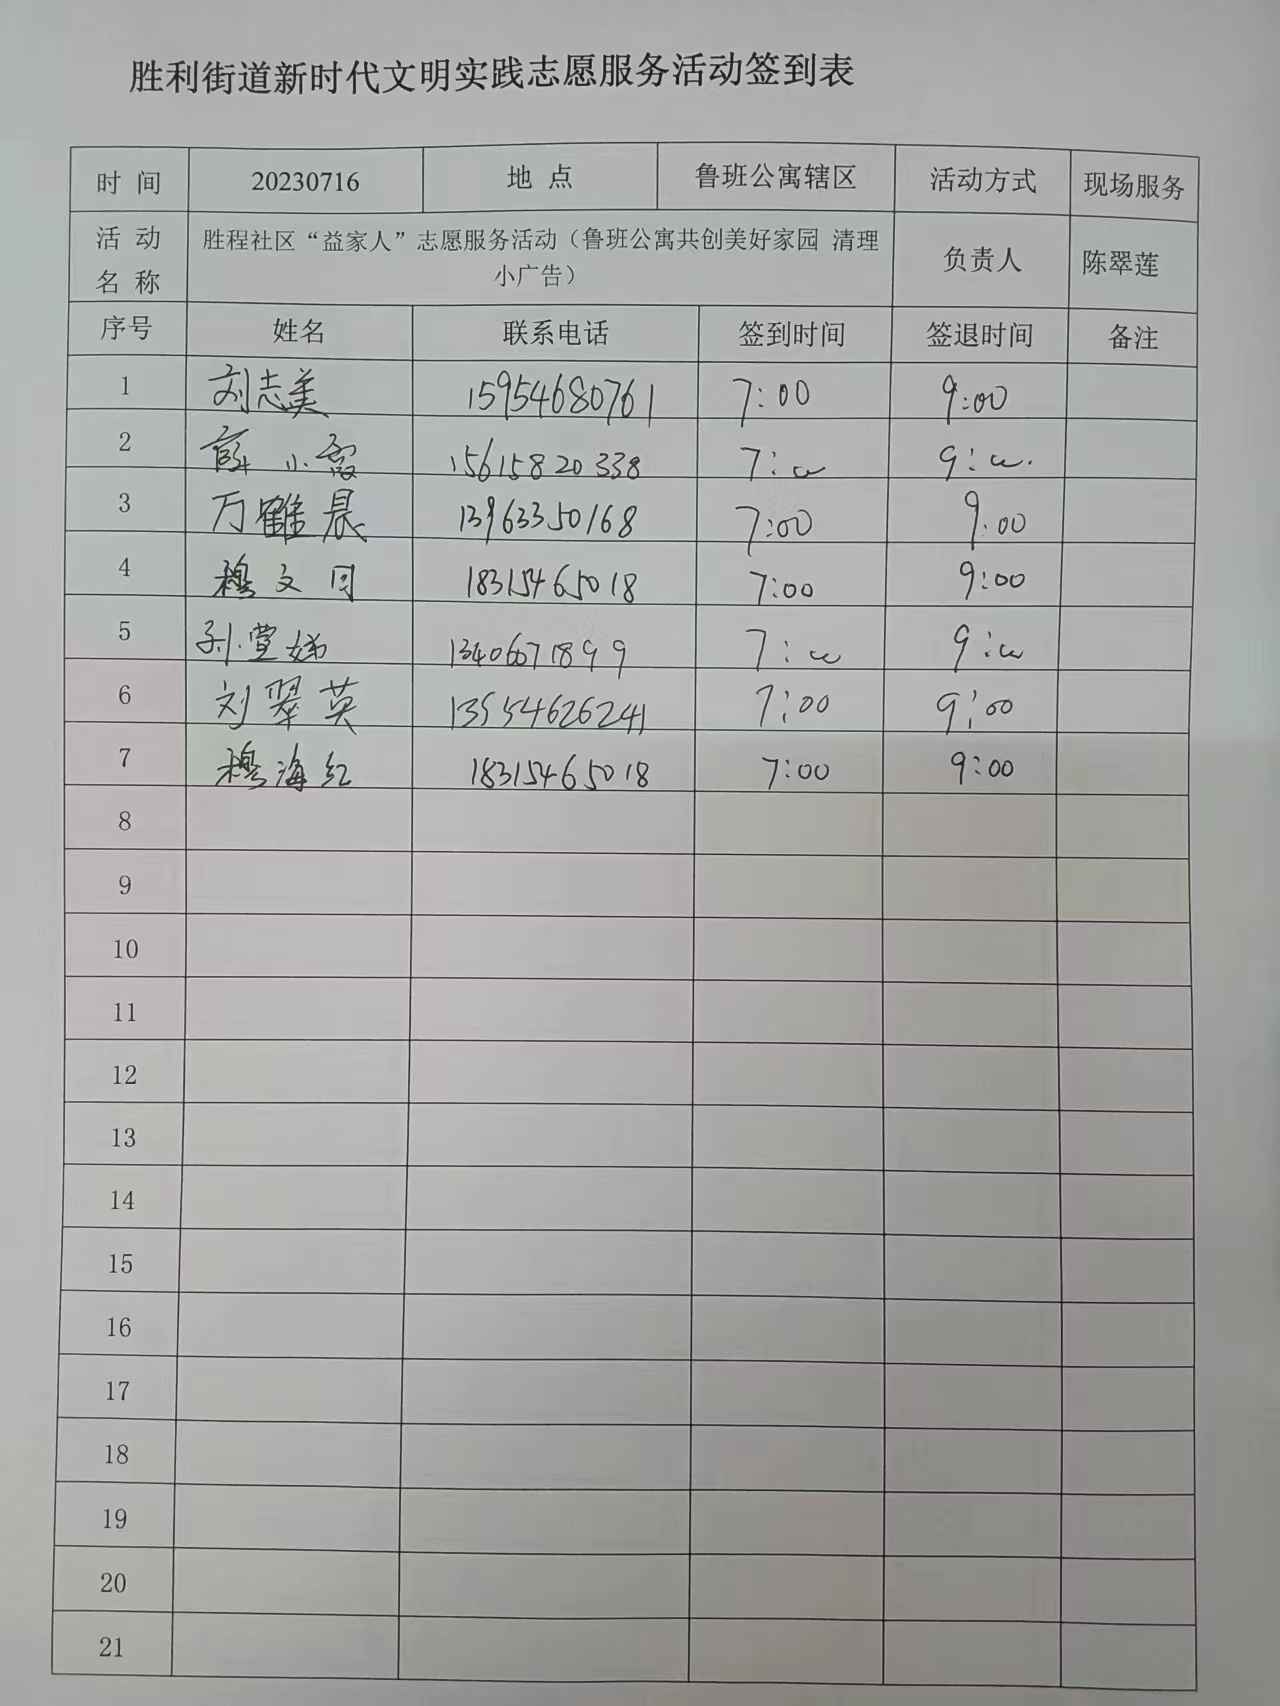 胜利街道新时代文明实践志愿服务活动签到表
时 间 20230716 地 点 鲁班公寓辖区 活动方式 现场服务
活 动 名 称 胜程社区“益家人”志愿服务活动（鲁班公寓共创美好家园 清理 小广告） 负责人 陈翠莲
序号 姓名 联系电话 签到时间 签退时间 备注
1 刘志美 15954680761 7:00 9:00
2 薛小霞 15615820338 7:00 9:00.
3 万鹤晨 13963350168 7:00 9:00
4 穆文同 18315465018 7:00 9:00
5 孙莹娣 13406671899 7:00 9:00
6 刘翠英 13954626241 7:00 9:00
7 穆海红 18315465018 7:00 9:00
8
9
10
11
12
13
14
15
16
17
18
19
20
21